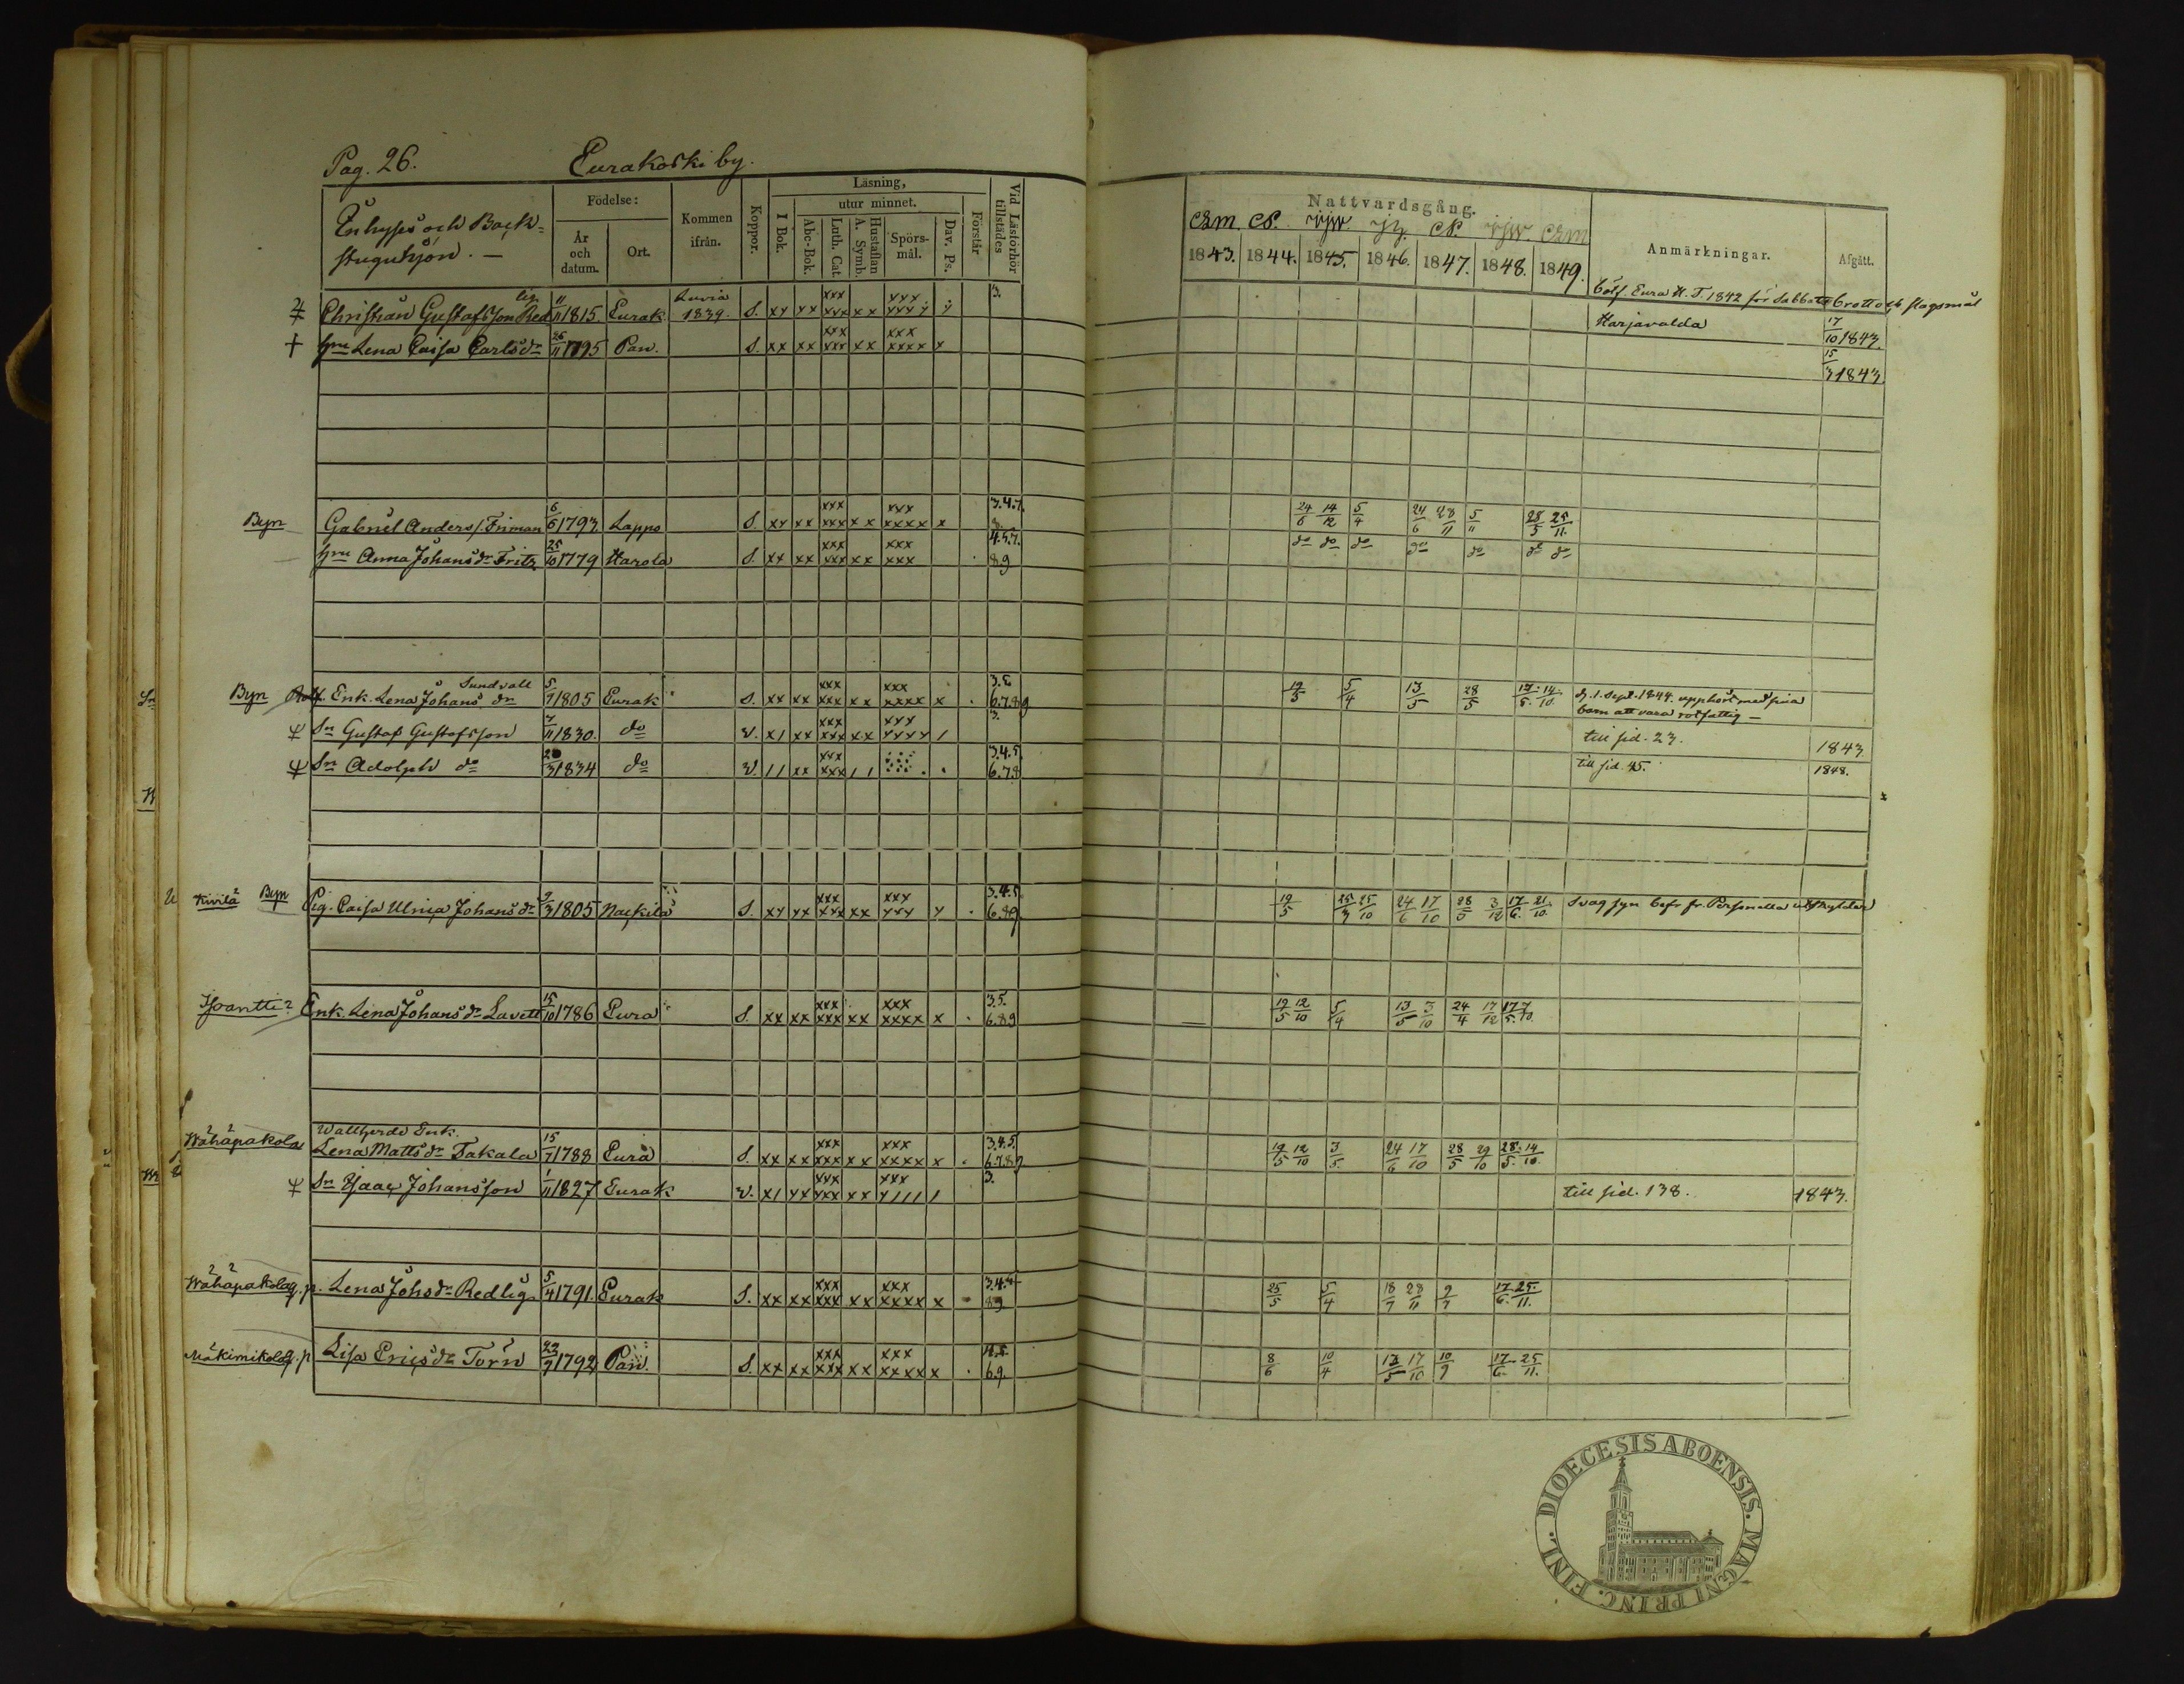 Pag. 26. Eurakoski by.
Inhyses och Back=
stuguhjon. —
Födelse:
År och datum.
Ort.
Kommen ifrån.
Koppor.
Läsning,
utur minnet.
I Bok.
Abc-Bok.
Luth. Cat.
Hustaflan A. Symb.
Spörsmål.
Dav. Ps.
Förstår
Vid Läsförhör tillstädes
Nattvardsgång.
1843. 1844. 1845. 1846. 1847. 1848. 1849.
Anmärkningar.
Afgått.
Christian Gustafsson Redlig 11/11 1815. Eurak. Luvia 1839. S. xx xx xxx xxx xx xxx xxxx 3. bötf. Eura H. T. 1842 för Sabbats brott och slagsmål
Harjavalda 17/10 1843.
† hru Lena Caisa Carlsdr 26/11 1795 Pan. S. xx xx xxx xxx xx xxx xxxx x 15/3 1843.
Byn Gabriel Anders s. Friman 6/6 1793 Lappo S. xx xx xxx xxx xx xxx xxxx x 3.4.7. 8. 24/6 14/12 5/4 24/6 28/11 5/11 28/5 25/11.
hru Anna Johansdr Fritz 25/10 1779 Harola S. xx xx xxx xxx xx xxx xxx 4.5.7. 89 do do do do do do do
Byn Enk. Lena Johansdr Sundvall 5/7 1805 Eurak S. xx xx xxx xxx xx xxx xxxx x 6.7.89 19/5 5/4 13/5 28/5 17/6. 14/10. d. 1. Sept. 1844. upphört med sina
barn att vara rotfattig —
Sn Gustaf Gustafsson 7/11 1830. do v. x/ xx xxx xxx xx xxx xxxx / 3. till sid. 23. 1843
Sn Adolph do 20/3 1834 do v. // xx xxx xxx // 3.4.5. 6.7.8 till sid. 45. 1848.
Kivilä Byn Pig. Caisa Ulrica Johansdr 9/3 1805 Nackila S. xx xx xxx xxx xx xxx xxx x 3.4.5. 6.89 19/5 25/3 25/10 24/6 17/10 28/5 3/12 17/6. 21/10. Svag syn befr. fr. Personella utskylder
Enk. Lena Johansdr Lavett 15/10 1786 Eura S. xx xx xxx xxx xx xxx xxxx x 3.5. 6.89 19/5 12/10 5/4 13/5 3/10 24/4 17/12 17/5. 7/10.
Wähäpakola Enk.
Lena Mattsdr Takala 15/7 1788 Eura S. xx xx xxx xxx xx xxx xxxx x 3.4.5. 6.7.89 19/5 12/10 3/5. 24/6 17/10 28/5 29/10 28/5. 14/10.
Sn Isaac Johansson 1/11 1827 Eurak v. x/ xx xxx xxx xx xxx x//// / 3. till sid. 138. 1843.
Wähäpakola g. p. Lena Johsdr Redlig 5/4 1791. Eurak S. xx xx xxx xxx xx xxx xxxx x 89 25/5 5/4 18/7 28/11 9/7 17/6. 25/11.
Mäkimikola g. p. Lisa Ericsdr Törn 22/7 1792 Pan. S. xx xx xxx xxx xx xxx xxxx x 69. 8/6 10/4 13/5 17/10 10/9 17/6. 25/11.
DIOECESIS ABOENSIS. MAGNI PRINC. FINL.